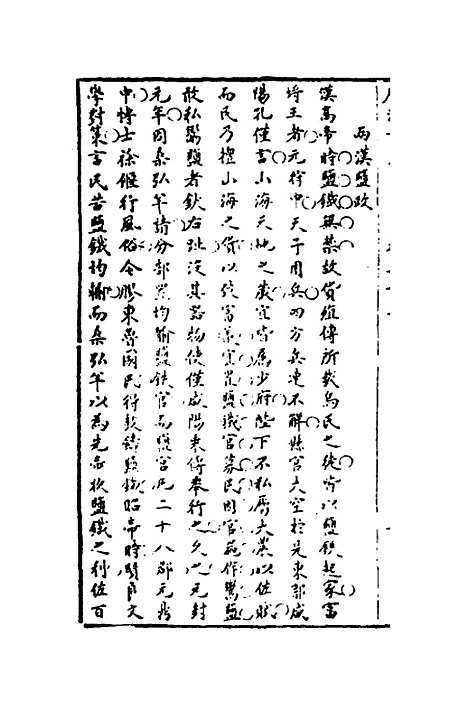 兩漢鹽政
漢高帝時鹽鐵無禁故貨殖傳所載烏民之徒皆以鹽鉄起家富
埒王者元狩中天子用兵四方兵連不解縣官大空於是東郭咸
陽孔僅言山海天地之藏宜皆屬少府陛下不私屬大農以佐賦
而民乃擅山海之貨以致富羨宜置鹽鐵官募民因官苑作鬻鹽
敢私鬻鹽者釱右趾沒其器物使僅咸陽乘傳奉行之久也元封
元年因桑弘羊請分部置均輸鹽鉄官而鹽官凡二十八郡元鼎
中博士徐偃行風俗令膠東魯國民得鼓鑄鹽鐵昭帝時賢良文
學對策言民苦鹽鐵均輸而桑弘羊以為先帝权鹽鐵之利佐百